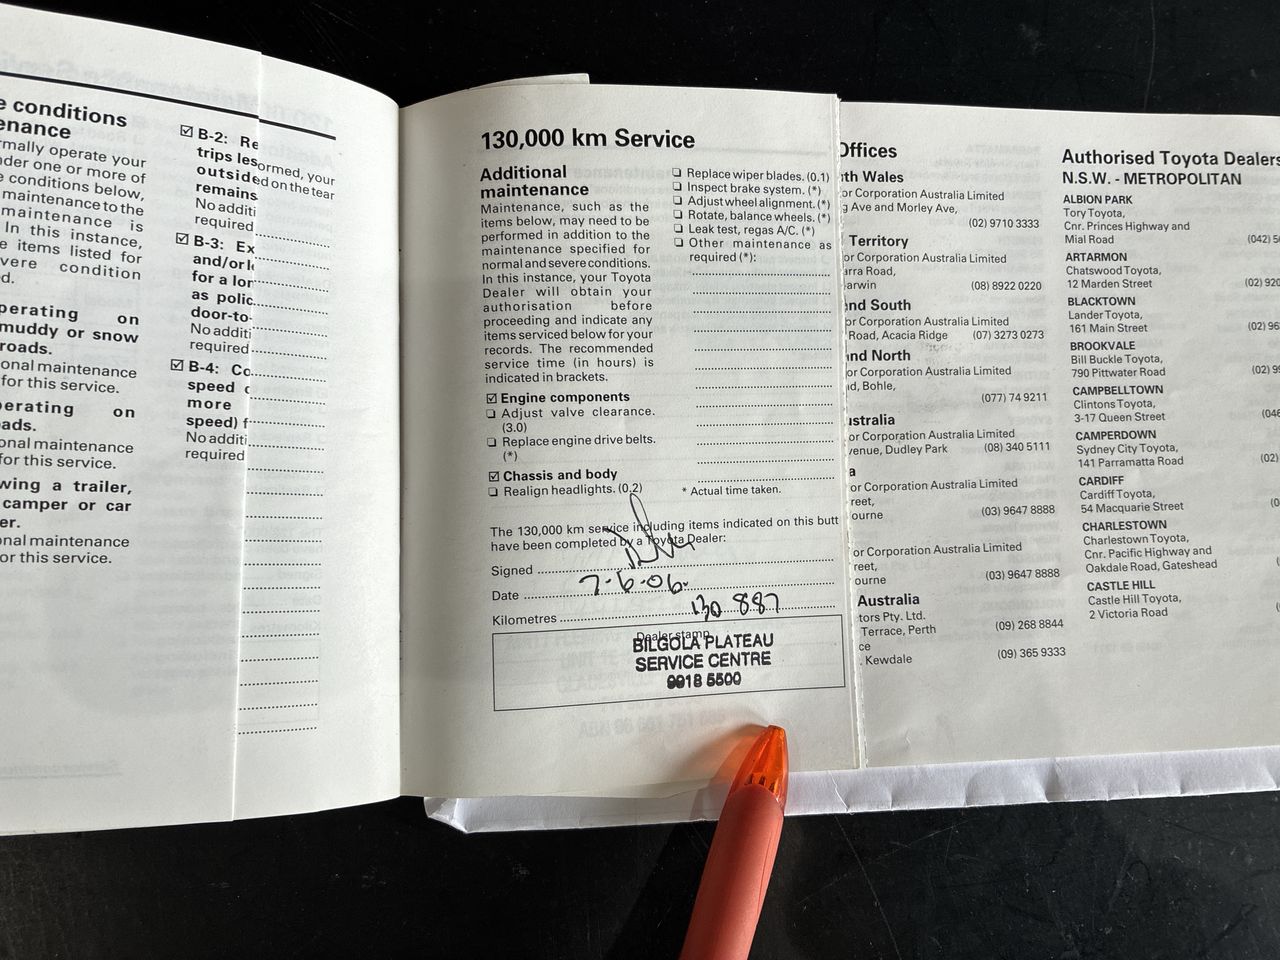 e conditions
enance
rmally operate your
nder one or more of
e conditions below,
maintenance to the
maintenance is
In this instance,
e items listed for
vere condition
d.
perating on
muddy or snow
roads.
onal maintenance
for this service.
erating on
ads.
onal maintenance
for this service.
wing a trailer,
camper or car
er.
onal maintenance
or this service.
☑ B-2: Re
trips les
outside
remains
No additi
required
☑ B-3: Ex
and/or
for a lon
as polic
door-to-
No additi
required
☑ B-4: Co
speed
more
speed) f
No additi
required
ormed, your
d on the tear
130,000 km Service
Additional
maintenance
Maintenance, such as the
items below, may need to be
performed in addition to the
maintenance specified for
normal and severe conditions.
In this instance, your Toyota
Dealer will obtain your
authorisation before
proceeding and indicate any
items serviced below for your
records. The recommended
service time (in hours) is
indicated in brackets.
☑ Engine components
❏ Adjust valve clearance.
(3.0)
❏ Replace engine drive belts.
(*)
☑ Chassis and body
❏ Realign headlights. (0.2)
❏ Replace wiper blades. (0.1)
❏ Inspect brake system. (*)
❏ Adjust wheel alignment. (*)
❏ Rotate, balance wheels. (*)
❏ Leak test, regas A/C. (*)
❏ Other maintenance as
required (*):
* Actual time taken.
The 130,000 km service including items indicated on this butt
have been completed by a Toyota Dealer:
Signed
Date 7-6-06
Kilometres 130 887
Dealer stamp
BILGOLA PLATEAU
SERVICE CENTRE
9918 5500
Offices
th Wales
or Corporation Australia Limited
g Ave and Morley Ave,
(02) 9710 3333
Territory
or Corporation Australia Limited
arra Road,
arwin (08) 8922 0220
nd South
or Corporation Australia Limited
Road, Acacia Ridge (07) 3273 0273
nd North
or Corporation Australia Limited
d, Bohle,
(077) 74 9211
ustralia
or Corporation Australia Limited
venue, Dudley Park (08) 340 5111
a
or Corporation Australia Limited
reet,
ourne (03) 9647 8888
or Corporation Australia Limited
reet,
ourne (03) 9647 8888
Australia
tors Pty. Ltd.
Terrace, Perth (09) 268 8844
ce
Kewdale (09) 365 9333
Authorised Toyota Dealers
N.S.W. - METROPOLITAN
ALBION PARK
Tory Toyota,
Cnr. Princes Highway and
Mial Road (042) 5
ARTARMON
Chatswood Toyota,
12 Marden Street (02) 920
BLACKTOWN
Lander Toyota,
161 Main Street (02) 96
BROOKVALE
Bill Buckle Toyota,
790 Pittwater Road (02) 99
CAMPBELLTOWN
Clintons Toyota,
3-17 Queen Street (046
CAMPERDOWN
Sydney City Toyota,
141 Parramatta Road (02)
CARDIFF
Cardiff Toyota,
54 Macquarie Street (0
CHARLESTOWN
Charlestown Toyota,
Cnr. Pacific Highway and
Oakdale Road, Gateshead
CASTLE HILL
Castle Hill Toyota,
2 Victoria Road